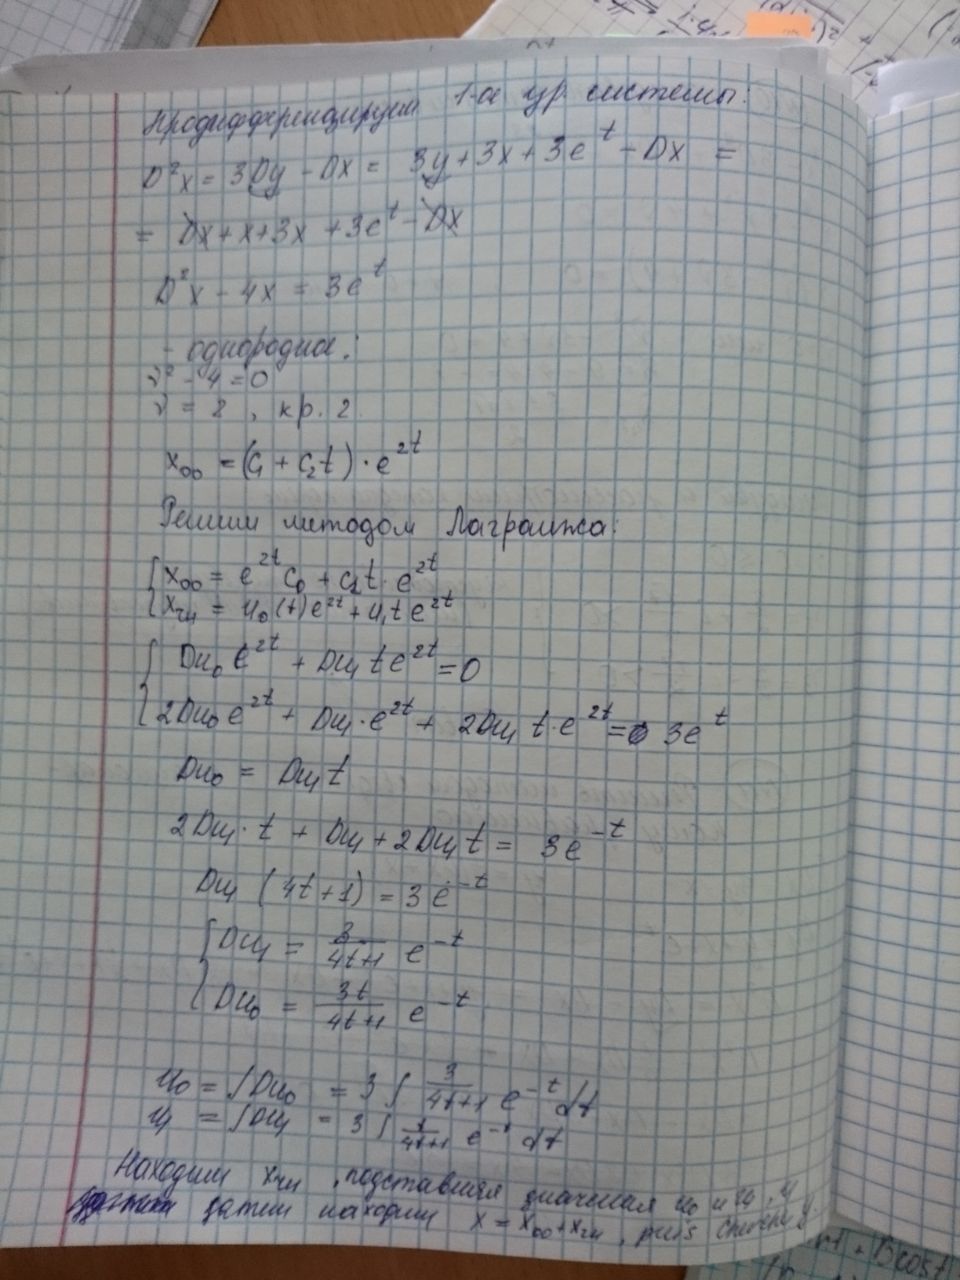 Продифференцируем 1-ое ур. системы:
D²x = 3Dy - Dx = 3y + 3x + 3e^t - Dx =
= Dx + x + 3x + 3e^t - Dx
D²x - 4x = 3e^t
- однородное:
ν² - 4 = 0
ν = 2, кр. 2.
x₀₀ = (C₁ + C₂t)·e^2t
Решим методом Лагранжа:
x₀₀ = e^2t C₀ + C₁t·e^2t
xчн = u₀(t)e^2t + u₁te^2t
Du₀ e^2t + Du₁ te^2t = 0
2Du₀e^2t + Du₁·e^2t + 2Du₁ t·e^2t = 3e^t
Du₀ = Du₁t
2Du₁·t + Du₁ + 2Du₁t = 3e^-t
Du₁ (4t+1) = 3e^-t
Du₁ = 3/(4t+1) e^-t
Du₀ = 3t/(4t+1) e^-t
u₀ = ∫Du₀ = 3∫ 3/(4t+1) e^-t dt
u₁ = ∫Du₁ = 3∫ 1/(4t+1) e^-t dt
Находим xчн, подставляя значения u₀ и u₁,
затем находим x = x₀₀ + xчн, puis
+ Bcost